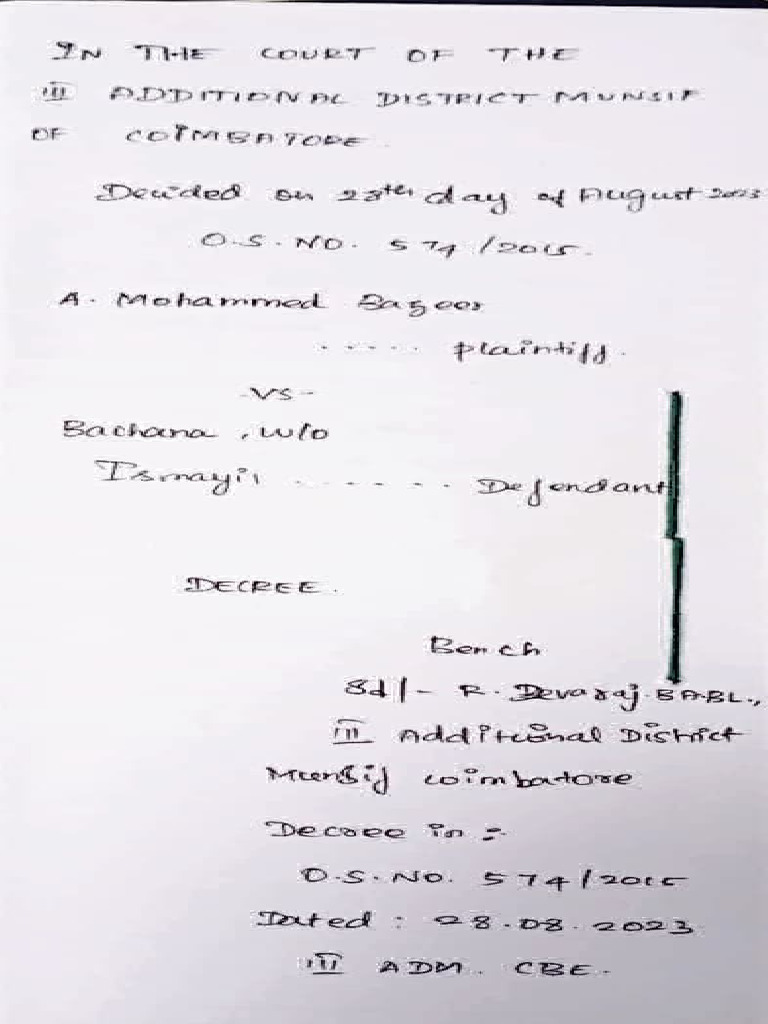 IN THE COURT OF THE
III ADDITIONAL DISTRICT MUNSIF
OF COIMBATORE.
Decided on 28th day of August 2023
O.S. NO. 574/2015.
A. Mohammed Sageer
..... plaintiff.
-VS-
Bachana, W/o
Ismayil ....... Defendant
DECREE.
Bench
Sd/- R. Devaraj. B.A.BL.,
III Additional District
Munsif Coimbatore
Decree in :-
O.S. NO. 574/2015
Dated : 28.08.2023
III ADM. CBE.